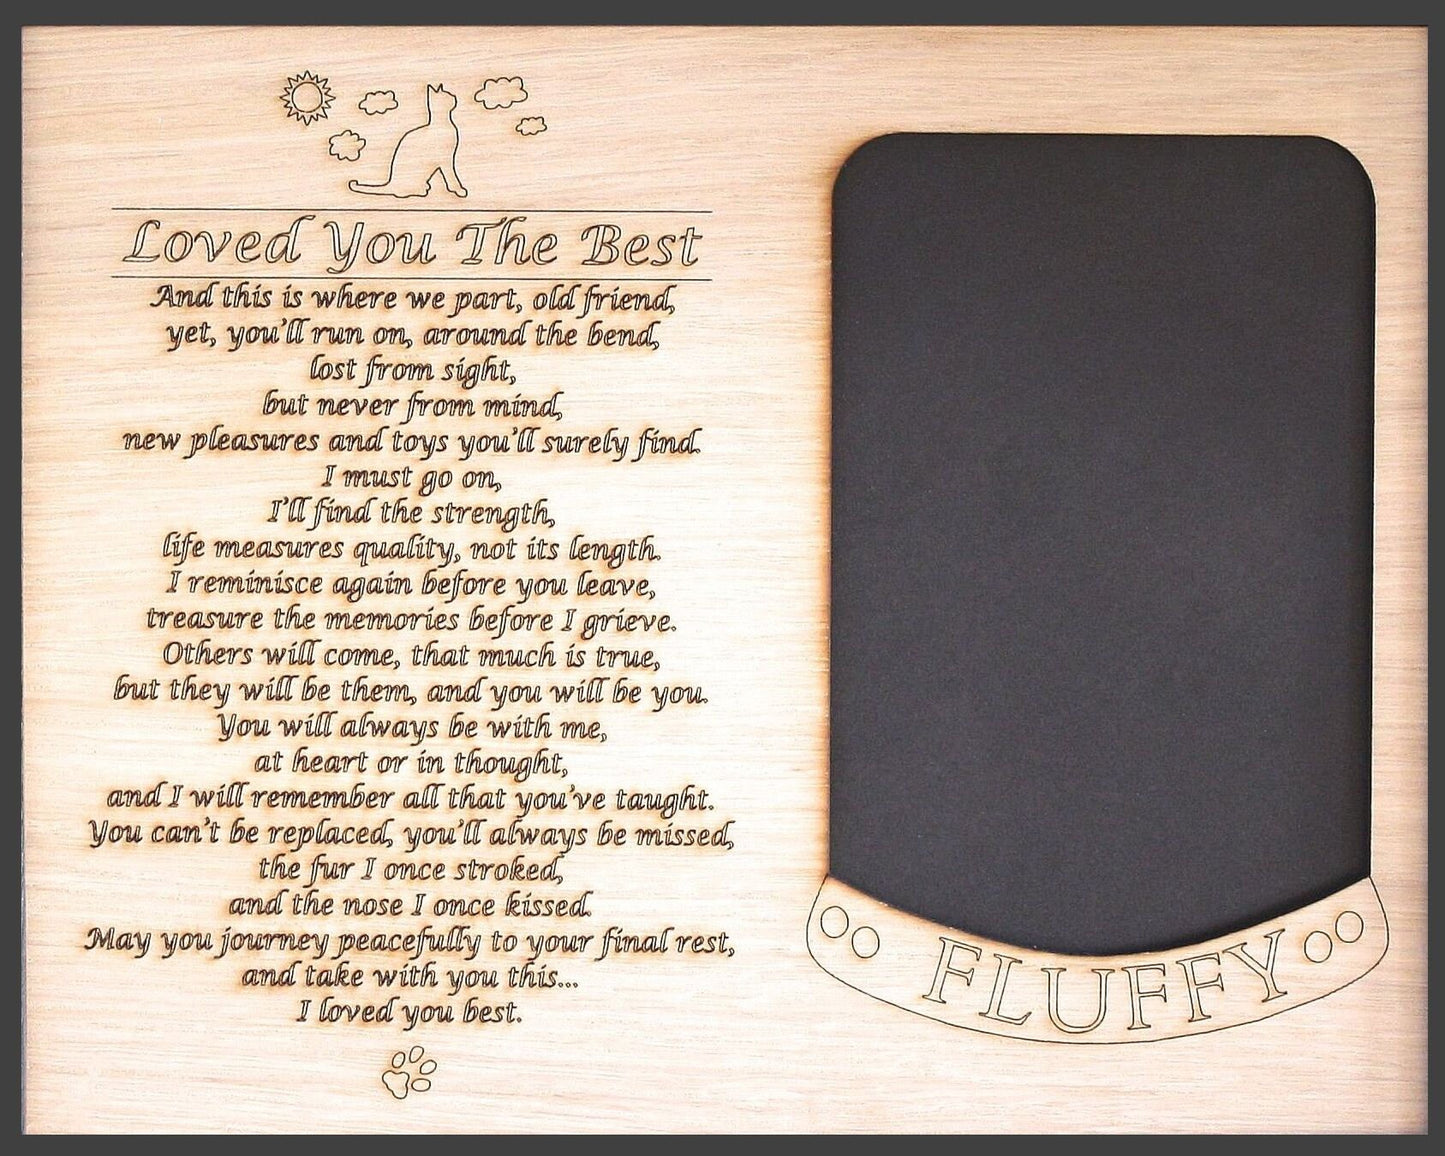 Loved You The Best
And this is where we part, old friend,
yet, you'll run on, around the bend,
lost from sight,
but never from mind,
new pleasures and toys you'll surely find.
I must go on,
I'll find the strength,
life measures quality, not its length.
I reminisce again before you leave,
treasure the memories before I grieve.
Others will come, that much is true,
but they will be them, and you will be you.
You will always be with me,
at heart or in thought,
and I will remember all that you've taught.
You can't be replaced, you'll always be missed,
the fur I once stroked,
and the nose I once kissed.
May you journey peacefully to your final rest,
and take with you this...
I loved you best.
FLUFFY